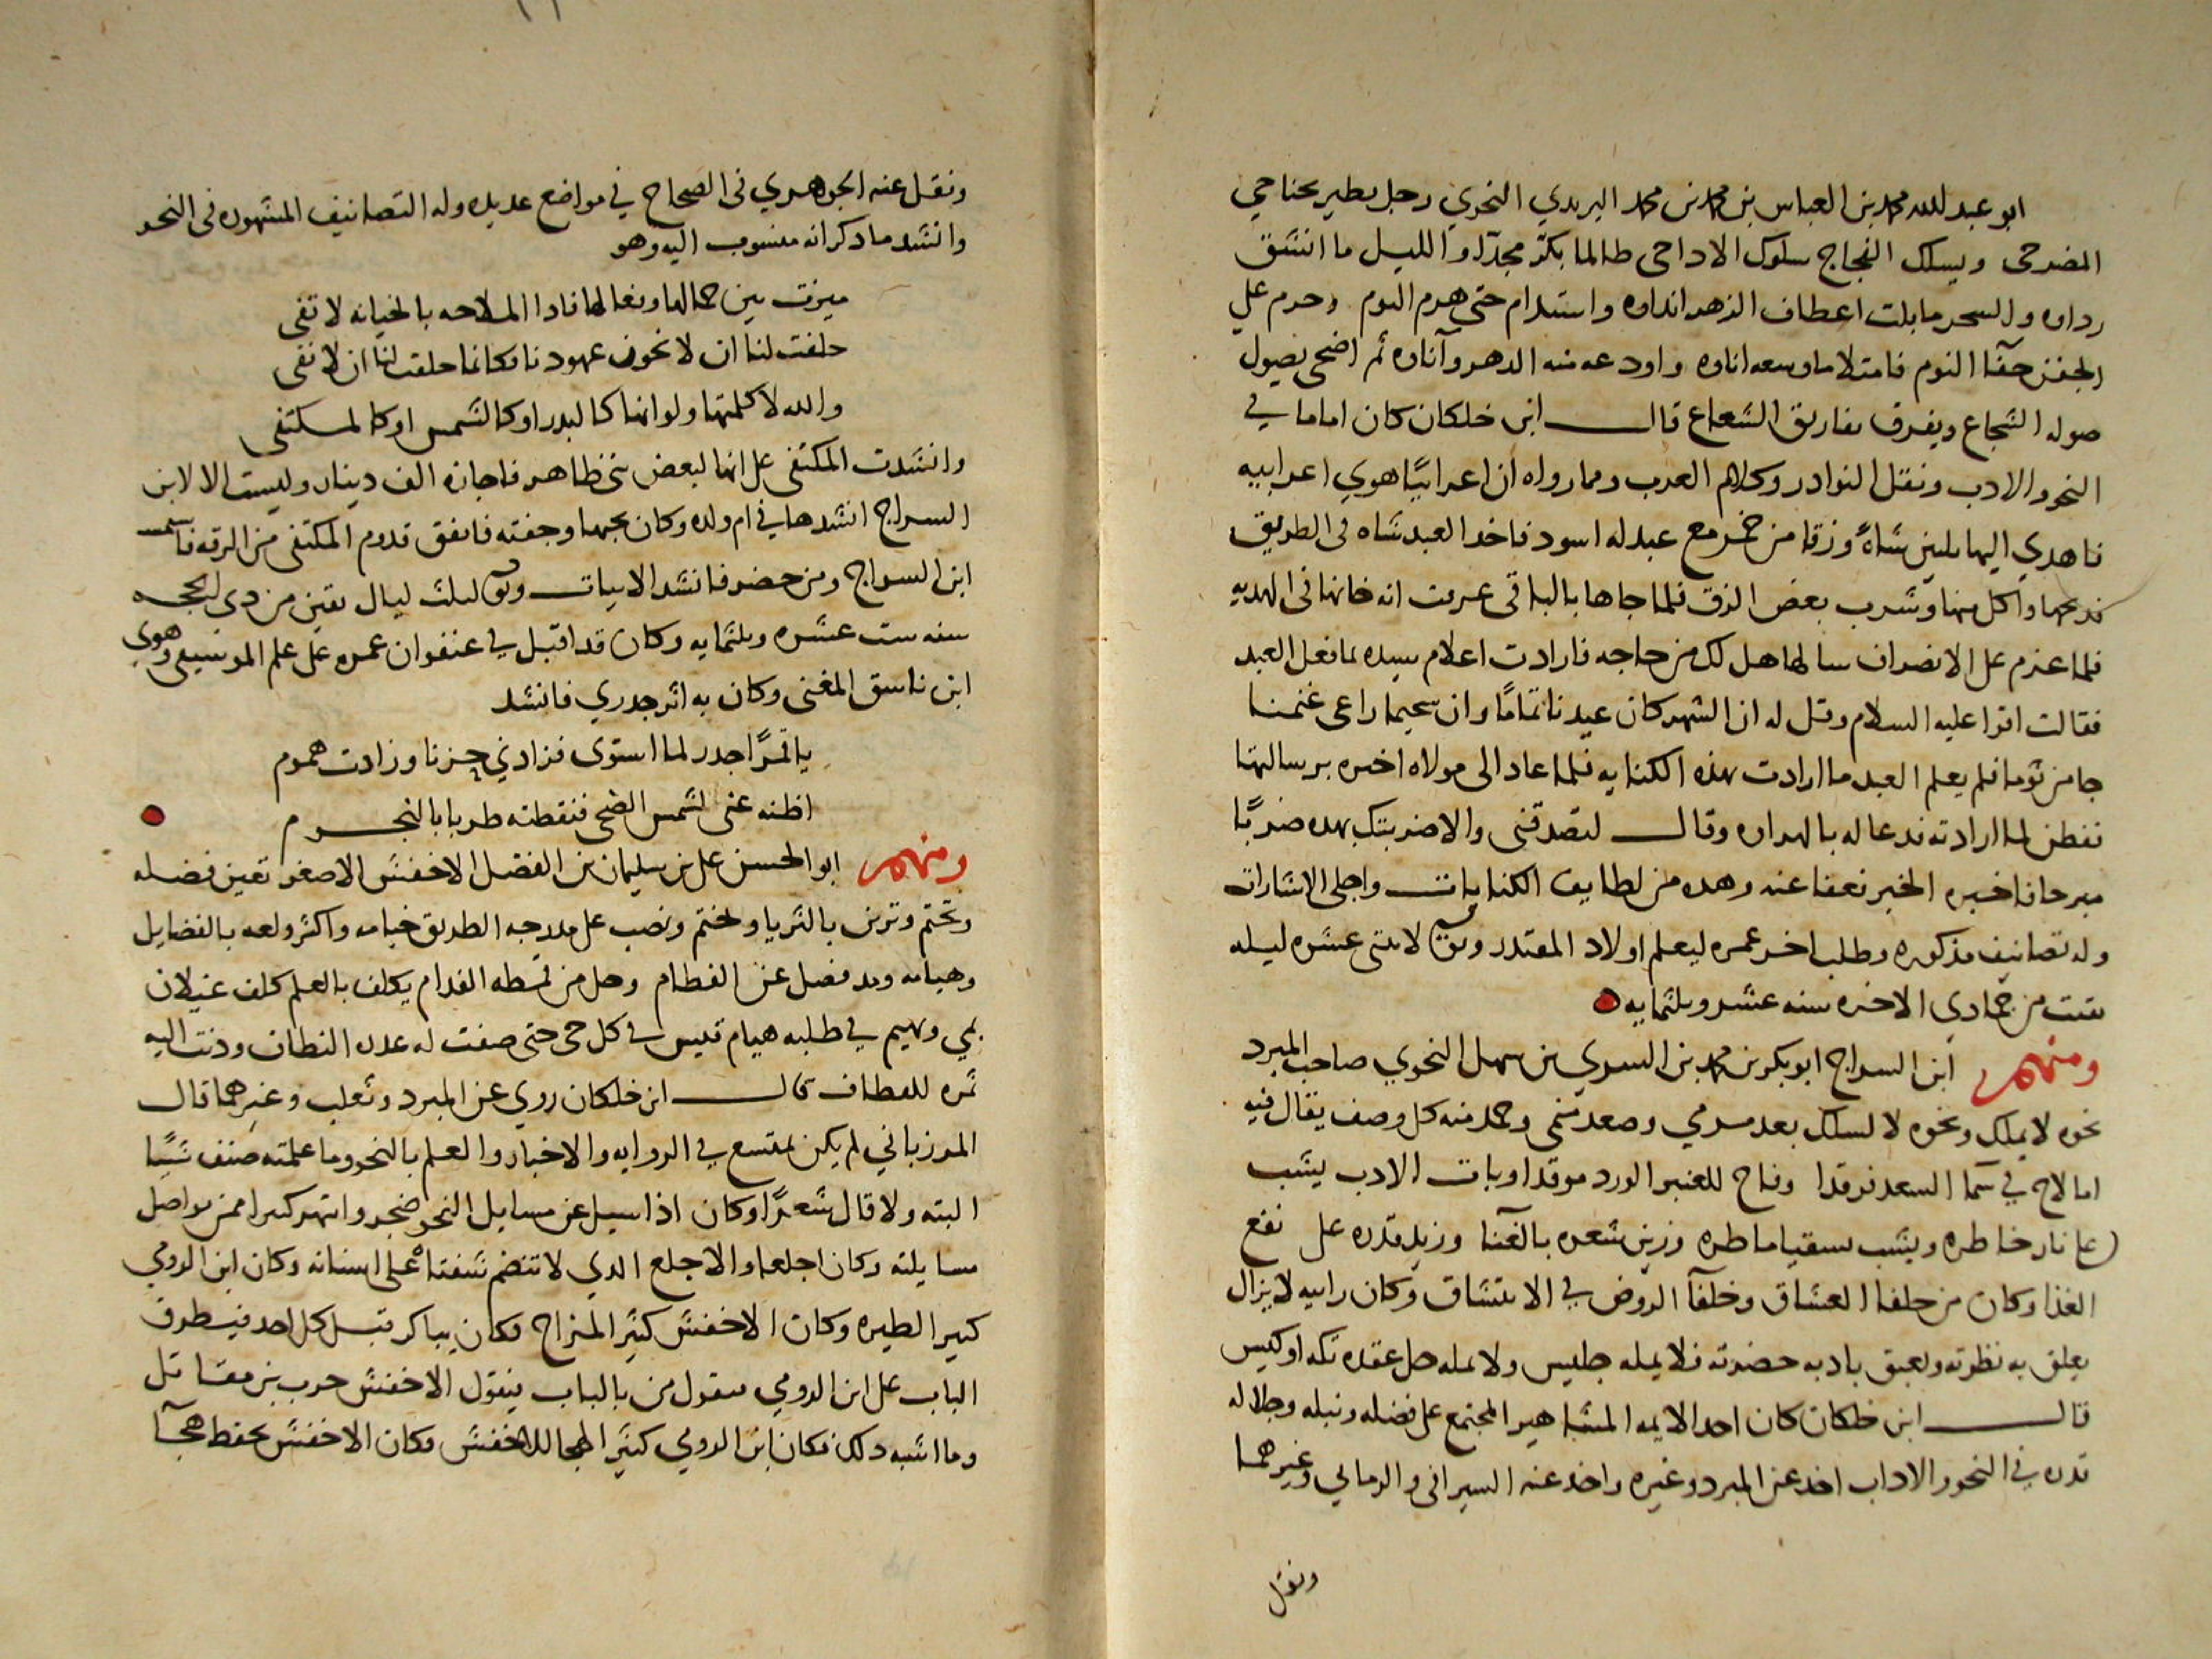 ابو عبد الله محمد بن العباس بن محمد بن محمد اليزيدي النحوي رجل يطير بجناحي
المضرحى ويسلك الفجاج سلوك الاداحى طالما بكر مجدّا والليل ما انشق
رداوه والسحر ما بلت اعطاف الزهر انداوه واستدام حتى هرم اليوم وحرم على
الجفن جفآ النوم فامتلا ما وسعه اناوه واودعه منه الدهر وآناوه ثم اضحى يصول
صوله الشجاع ويفرق تفاريق الشعاع قال ابن خلكان كان اماما في
النحو والادب ونقل النوادر وكلام العرب ومما رواه ان اعرابيًا هوي اعرابيه
فاهدي اليها ثلثين شاهً وزقا من خمر مع عبد له اسود فاخد العبد شاه فى الطريق
فدبحها واكل منها وشرب بعض الزق فلما جاها بالباقى عرفت انه خانها فى الهديه
فلما عزم على الانصراف سالها هل لك من حاجه فارادت اعلام سيده بما فعل العبد
فقالت اقرا عليه السلام وقل له ان الشهر كان عيدنا تمامًا وان سحيما راعى غنمنا
جا مرثوما فلم يعلم العبد ما ارادت بهذه الكنايه فلما عاد الى مولاه اخبره برسالتها
ففطن لما ارادته فدعا له بالهراوه وقال لتصدقنى والا ضربتك بهده ضربًا
مبرحا فاخبره الخبر فعفا عنه وهده من لطايف الكنايات واحلى الاشارات
وله تصانيف مذكوره وطلب اخر عمره ليعلم اولاد المقتدر وتوفى لاثنتى عشره ليله
بقيت من جمادى الاخره سنه عشر وثلثمايه
ومنهم ابن السراج ابو بكر بن محمد بن السري بن سهل النحوي صاحب المبرد
نحوه لا يملك ونحوه لا يسلك بعد مرمي وصعد منمى وحمد منه كل وصف يقال فيه
اما لاح في سما السعد فرقدا وفاح للعنبر الورد موقدا وبات الادب يشب
على نار خاطره ويشب بسقيا ماطره وزين شعره بالغنآ وزيد قدره على نفع
الغذا وكان من حلفا العشاق وخلفآ الروض في الانتشاق وكان راييه لا يزال
يعلق به نظرته ويعبق باديه حضرته فلا يمله جليس ولا يمله حل عقده تكه او كيس
قال ابن خلكان كان احد الايمه المشاهير المجتمع على فضله ونبله وجلاله
قدره في النحو والاداب اخد عن المبرد وغيره واخد عنه السيرافى والرماني وغيرهما
ونقل
ونقل عنه الجوهري فى الصحاح في مواضع عديده وله التصانيف المشهوره فى النحو
وانشد ما دكر انه منسوب اليه وهو
ميزت بين جمالها وفعالها فادا الملاحه بالخيانه لا تفى
حلفت لنا ان لا تخون عهودنا فكانما حلفت لنا ان لا تفى
والله لا كلمتها ولو انها كالبدر او كالشمس او كالمكتفى
وانشدت المكتفى على انها لبعض بنى ظاهر فاجازه الف دينار وليست الا لابن
السراج انشدها في ام ولده وكان يحبها وجفته فاتفق قدوم المكتفى من الرقه
ابن السراج ومن حضر فانشد الابيات وتوفى لثلث ليال بقين من دى الحجه
سنه ست عشره وثلثمايه وكان قد اقبل في عنفوان عمره على علم الموسيقى وهوي
ابن ناسق المغنى وكان به اثر جدري فانشد
يا قمرًا جدر لما استوى فزادني حزنا وزادت هموم
اظنه غنى لشمس الضحى فنقطته طربا بالنجوم
ومنهم ابو الحسن على بن سليمان بن الفضل الاخفش الاصغر تعين فضله
وتحتم وتزين بالثريا وتختم ونصب على مدرجه الطريق خيامه واكثر ولعه بالفضايل
وهيامه وقد فصل عن الفطام وحل من قمطه الفدام يكلف بالعلم كلف غيلان
بمي ويهيم في طلبه هيام قيس في كل حى حتى صفت له عده النطاف ودنت اليه
ثمره للقطاف قال ابن خلكان روي عن المبرد وثعلب وغيرهما قال
المرزباني لم يكن بمتسع في الروايه والاخبار والعلم بالنحو وما علمته صنف شيًا
البته ولا قال شعرًا وكان اذا سيل عن مسايل النحو ضجر وانتهر كثيرا ممن يواصل
مسايلته وكان اجلعا والاجلع الدي لا تنضم شفتاه على اسنانه وكان ابن الرومي
كثير الطيره وكان الاخفش كثير المزاح فكان يباكر قبل كل احد فيطرق
الباب على ابن الرومي فيقول من بالباب فيقول الاخفش حرب بن مقاتل
وما اشبه دلك فكان ابن الرومي كثير الهجا للاخفش وكان الاخفش يحفظ هجآ